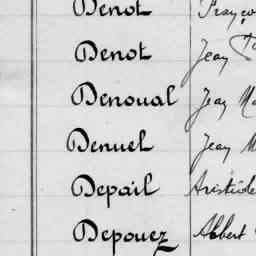 Denot
Denot Jean
Denoual Jean
Denuel Jean
Depail Aristide
Depouez Albert